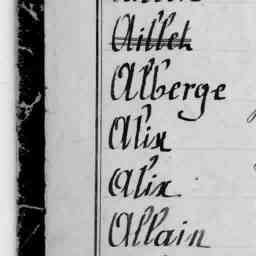 Aillet
Alberge
Alix
Alix
Allain